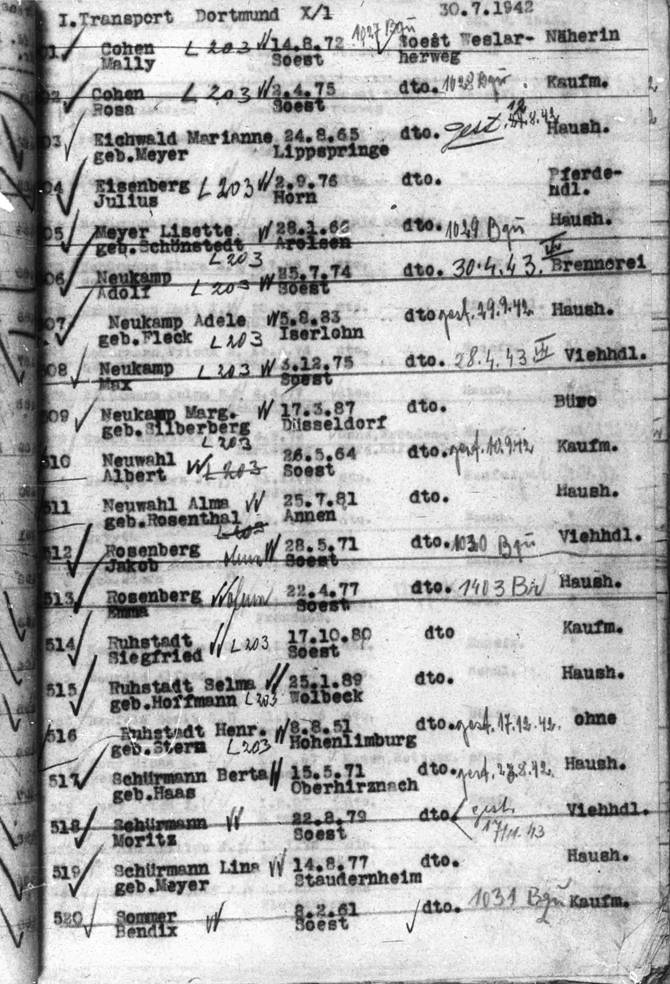 I.Transport Dortmund X/1 30.7.1942
01 Cohen L 203 W 14.8.72 1027 Bqū Soest Weslar- Näherin
Mally Soest herweg
02 Cohen L 203 W 2.4.75 dto. 1028 Bqū Kaufm.
Rosa Soest
03 Eichwald Marianne 24.8.65 dto. gest. Haush.
geb.Meyer Lippspringe
04 Eisenberg L 203 W 2.9.76 dto. Pferde-
Julius Horn hdl.
05 Meyer Lisette W 28.1.66 dto. 1029 Bqū Haush.
geb.Schönstedt Arolsen
L 203
06 Neukamp W 25.7.74 dto. 30.4.43. Brennerei
Adolf L 203 Soest
07 Neukamp Adele W 5.8.83 dto gest. 29.9.42 Haush.
geb.Fleck L 203 Iserlohn
08 Neukamp L 203 W 3.12.75 dto. 28.4.43 Viehhdl.
Max Soest
09 Neukamp Marg. W 17.3.87 dto. Büro
geb.Silberberg Düsseldorf
L 203
510 Neuwahl 26.5.64 dto. gest. 10.9.42 Kaufm.
Albert W L 203 Soest
511 Neuwahl Alma W 25.7.81 dto. Haush.
geb.Rosenthal Annen
L 203
512 Rosenberg W 28.5.71 dto. 1030 Bqū Viehhdl.
Jakob Soest
513 Rosenberg W 22.4.77 dto. 1403 Haush.
Emma Soest
514 Ruhstadt W L 203 17.10.80 dto Kaufm.
Siegfried Soest
515 Ruhstadt Selma W 25.1.89 dto. Haush.
geb.Hoffmann L 203 Wolbeck
516 Ruhstadt Henr. W 8.8.51 dto. gest. 17.12.42. ohne
geb.Stern L 203 Hohenlimburg
517 Schürmann Berta W 15.5.71 dto. gest. 27.8.42. Haush.
geb.Haas Oberhirznach
518 Schürmann W 22.8.79 dto. gest. Viehhdl.
Moritz Soest 17/11.43
519 Schürmann Lina W 14.8.77 dto. Haush.
geb.Meyer Staudernheim
520 Sommer W 8.2.61 dto. 1031 Bqū Kaufm.
Bendix Soest